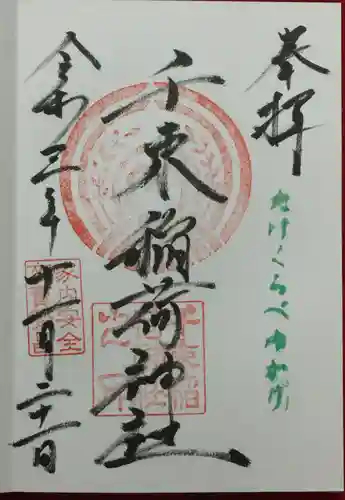 奉拝
たけくらべゆかり
千束稲荷神社
令和三年十一月二十一日
家内安全